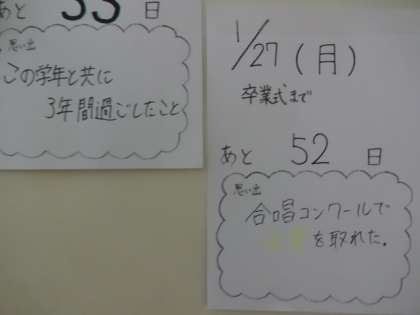 あと 日
思い出
この学年と共に
3年間過ごしたこと
1/27(月)
卒業式まで
あと 52 日
思い出
合唱コンクールで
を取れた。